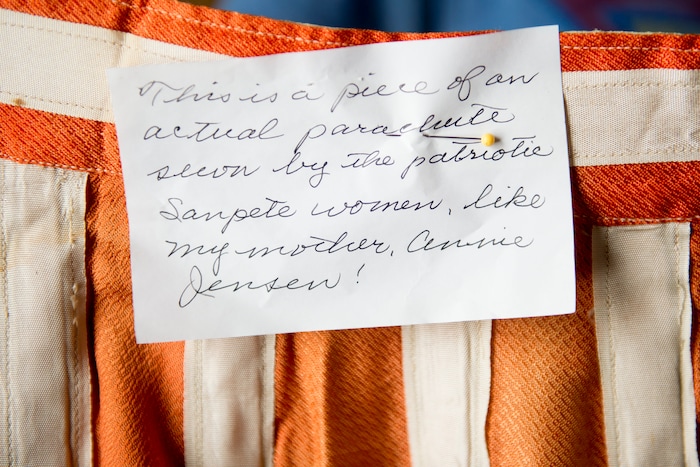 This is a piece of an
actual parachute
sewn by the patriotic
Sanpete women, like
my mother, Annie
Jensen!